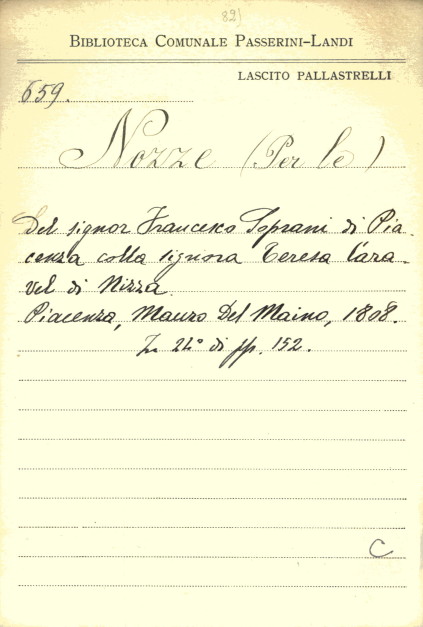 82)
BIBLIOTECA COMUNALE PASSERINI-LANDI
LASCITO PALLASTRELLI
659.
Nozze (Per le)
Del signor Francesco Soprani di Pia-
cenza colla signora Teresa Cara-
vel di Nizza.
Piacenza, Mauro Del Maino, 1808.
In 24° di pp. 152.
C